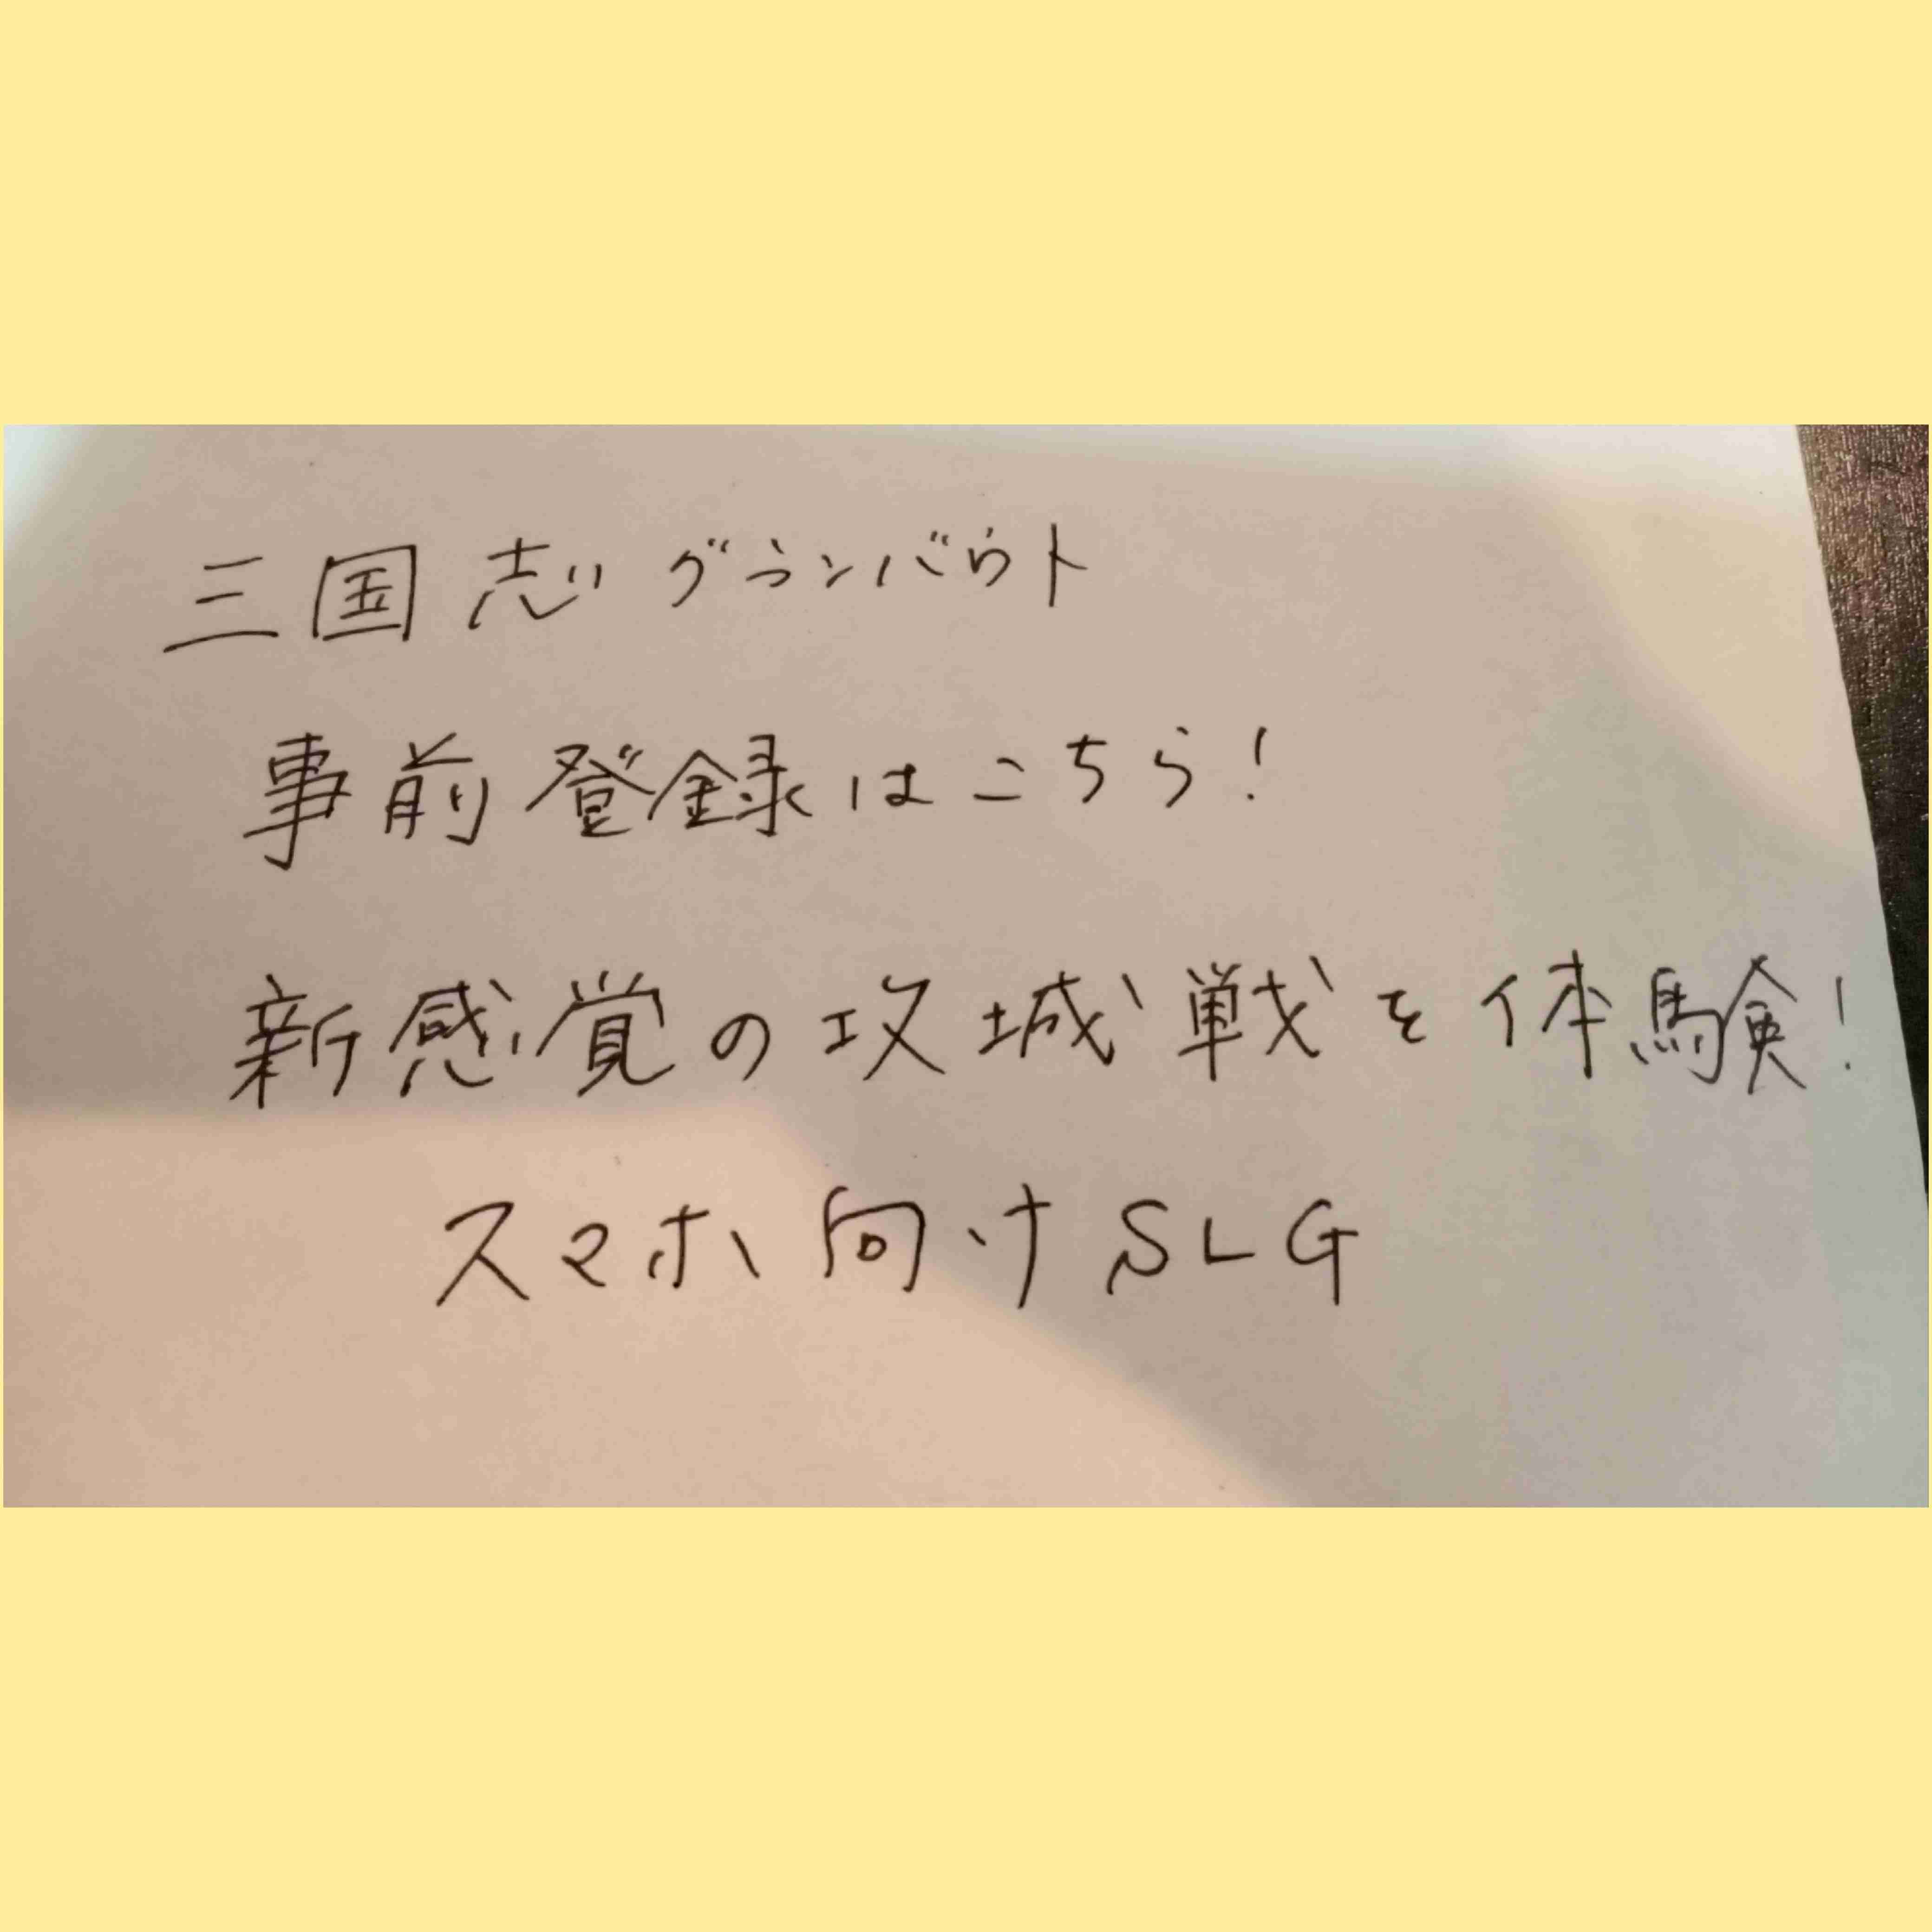 三国志グランバウト
事前登録はこちら!
新感覚の攻城戦を体験!
スマホ向けSLG